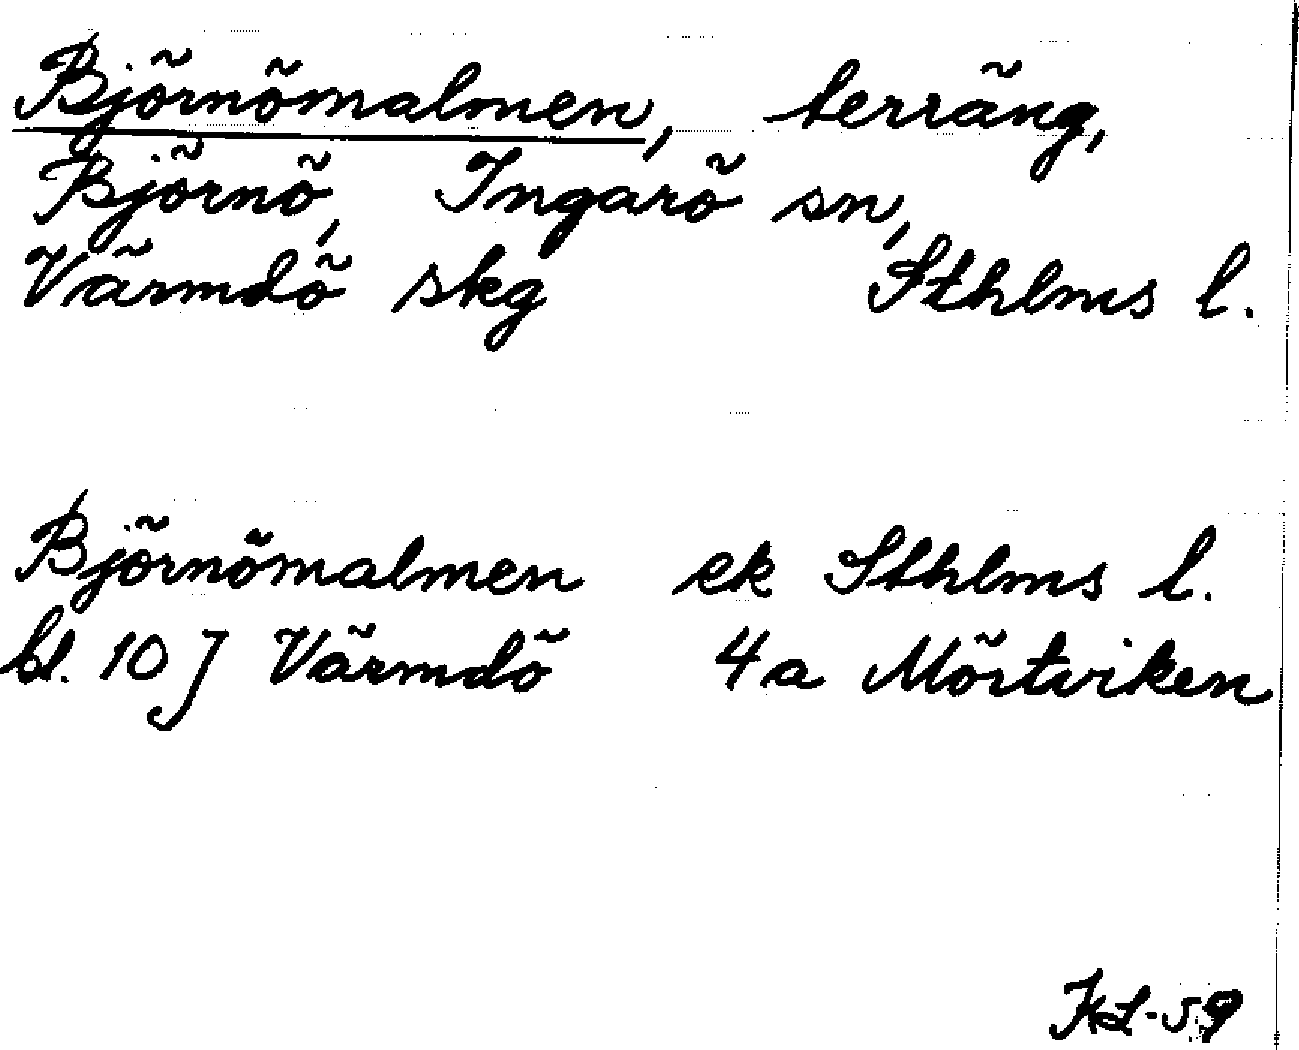 Björnömalmen, terräng,
Björnö, Ingarö sn,
Värmdö skg Sthlms l.
Björnömalmen ek Sthlms l.
bl. 10 J Värmdö 4a Mörtviken
KL-59